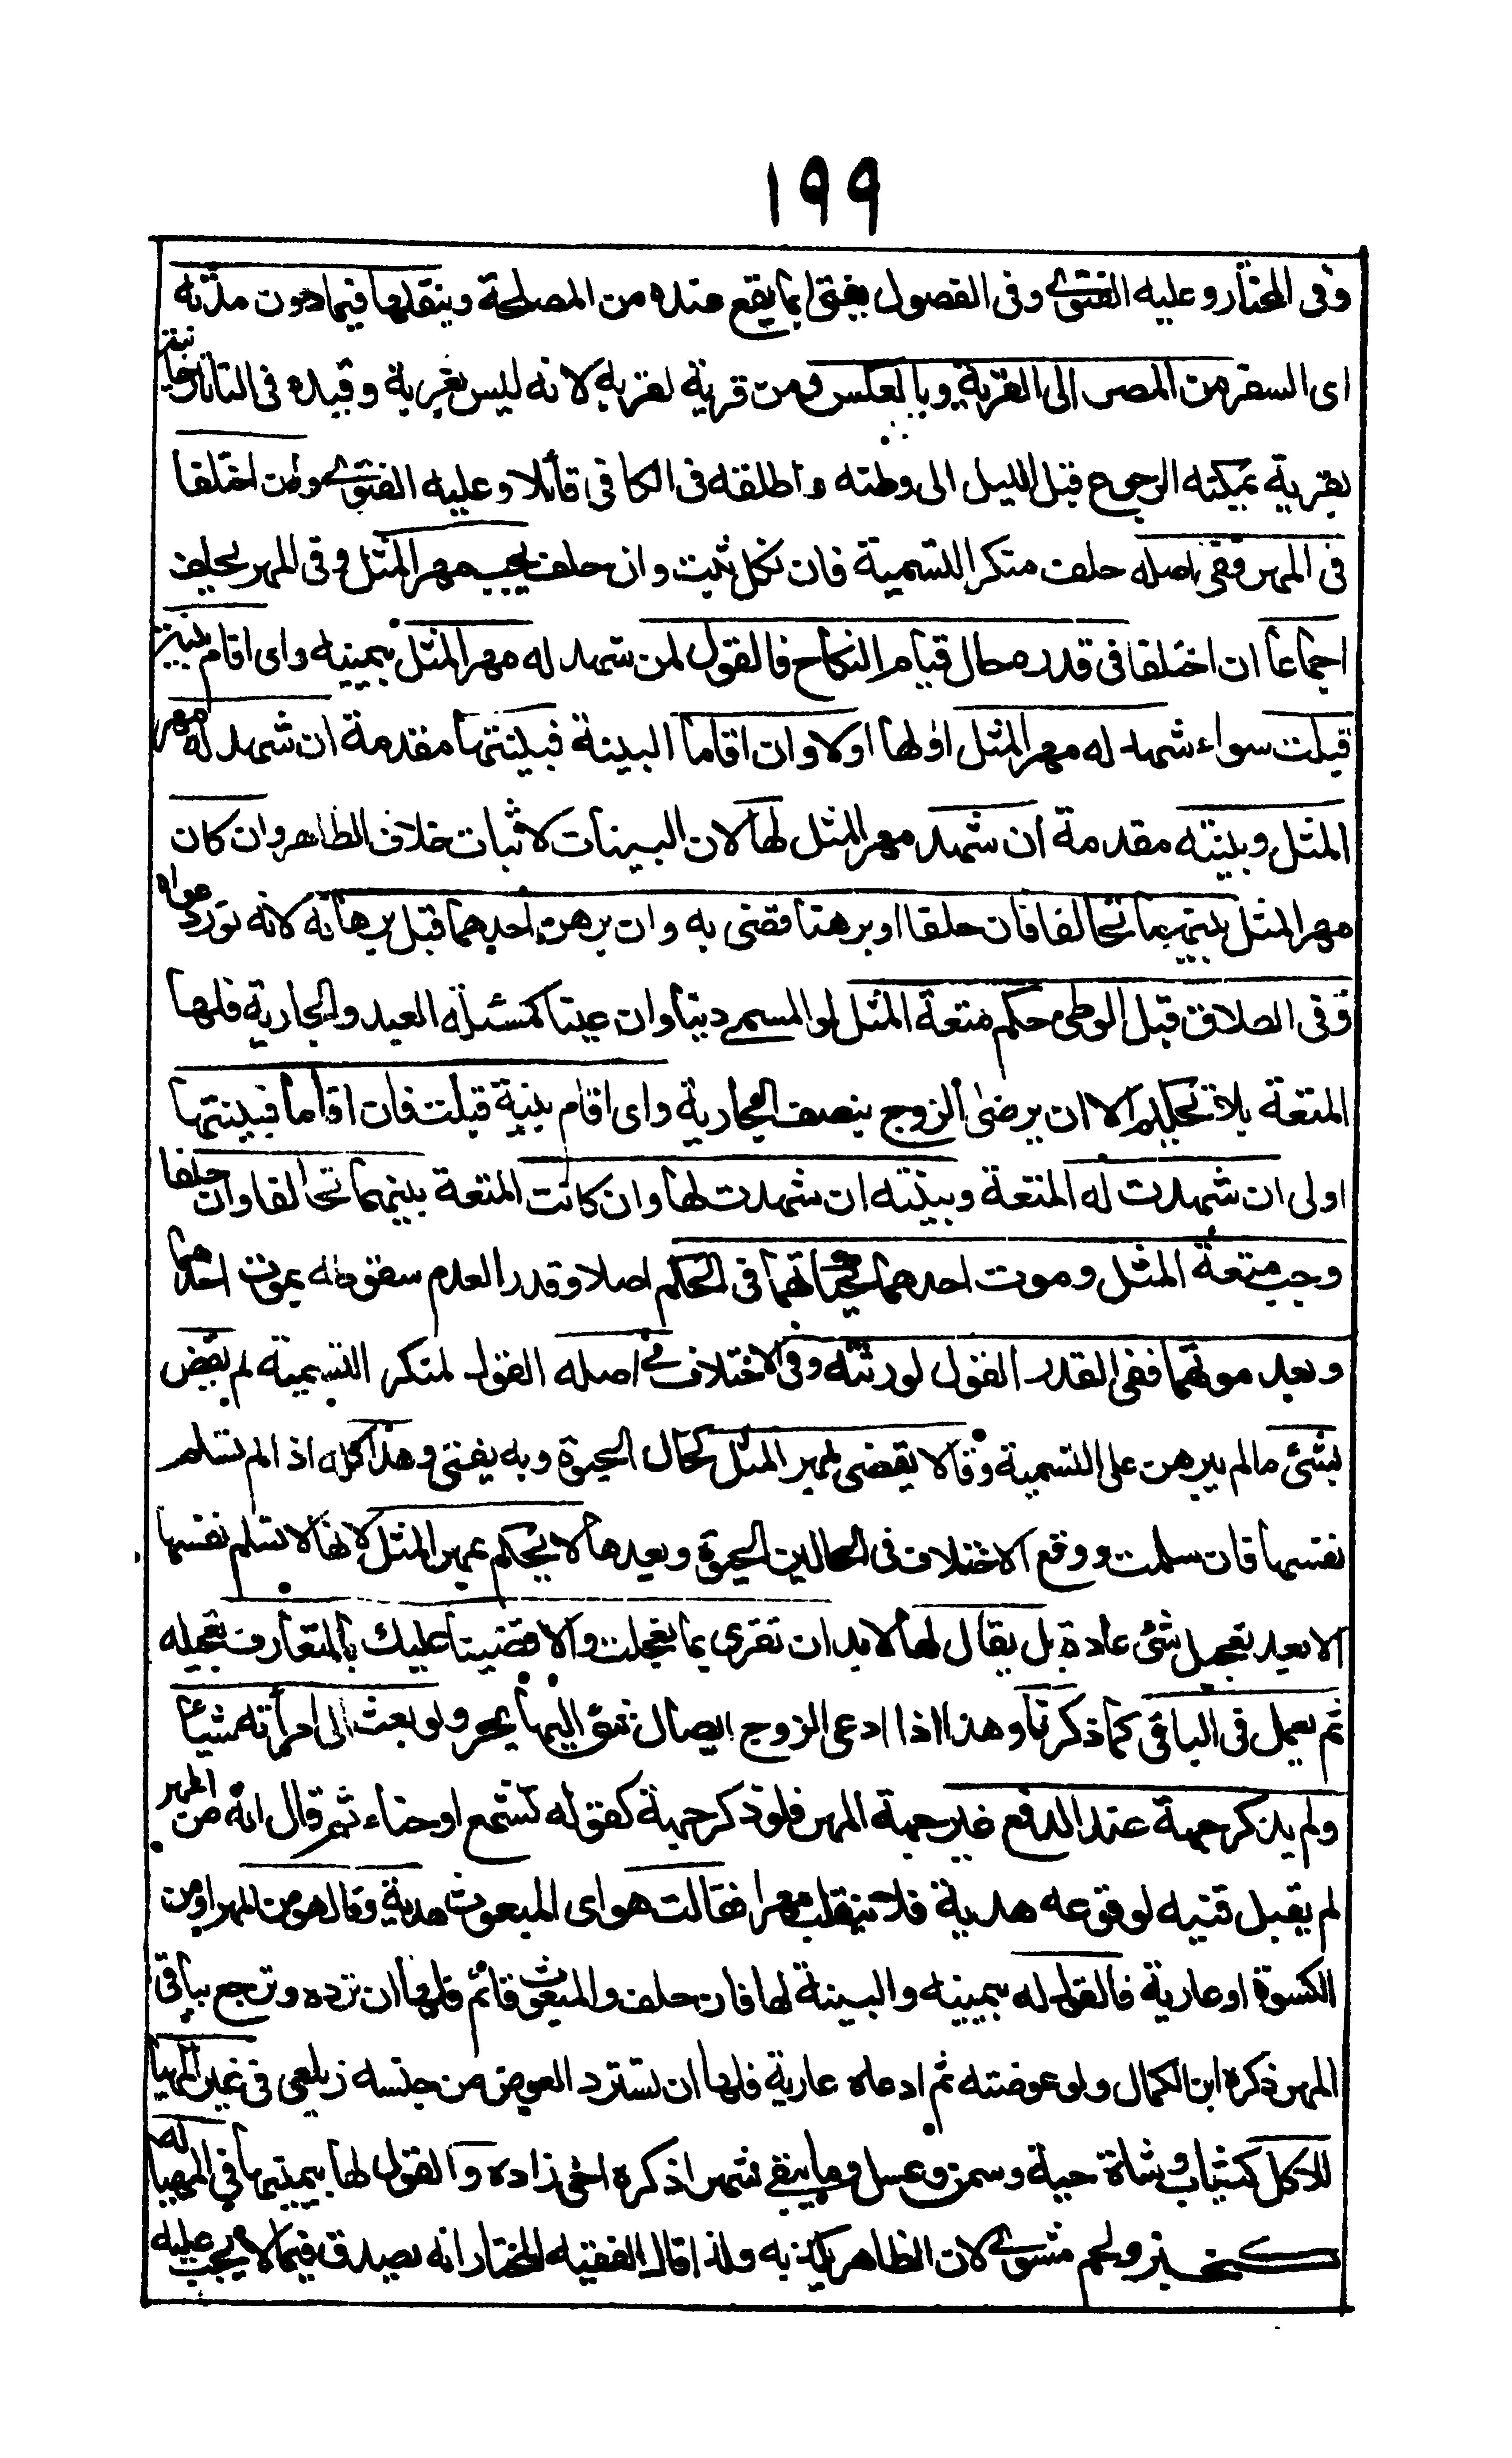 ١٩٩
وفى المختار وعليه الفتوى وفى الفصول يفتى بما يقع عنده من المصلحة وينقلها فيما دون مدته
اى السفر من المصر الى القرية وبالعكس ومن قرية لقرية لانه ليس بغربة وقيده فى التاتارخانية
بقرية يمكنه الرجوع قبل الليل الى وطنه واطلقه فى الكافى قائلا وعليه الفتوى وان اختلفا
فى المهر ففى اصله حلف منكر التسمية فان نكل ثبت وان حلف يجب مهر المثل وفى المهر يحلف
اجماعا ان اختلفا فى قدره حال قيام النكاح فالقول لمن شهد له مهر المثل بيمينه واى اقام بينة
قبلت سواء شهد له مهر المثل او لها اولا وان اقاما البينة فبينتها مقدمة ان شهد له مهر
المثل وبينته مقدمة ان شهد مهر المثل لها لان البينات لاثبات خلاف الظاهر وان كان
مهر المثل بينهما تحالفا فان حلفا او برهنا قضى به وان برهن احدهما قبل برهانه لانه نور دعواه
وفى الطلاق قبل الوطى حكم متعة المثل لو المسمى دينا وان عينا كمسئلة العبد والجارية فلها
المتعة بلا تحكيم الا ان يرضى الزوج بنصف الجارية واى اقام بينة قبلت فان اقاما فبينتها
اولى ان شهدت له المتعة وبينته ان شهدت لها وان كانت المتعة بينهما تحالفا وان حلفا
وجب متعة المثل وموت احدهما كحياتهما فى الحكم اصلا وقدرا لعدم سقوطه بموت احدهما
وبعد موتهما ففى القدر القول لورثته وفى الاختلاف فى اصله القول لمنكر التسمية لم يقض
بشئ ما لم يبرهن على التسمية وقالا يقضى بمهر المثل كحال الحيوة وبه يفتى وهذا كله اذا لم تسلم
نفسها فان سلمت ووقع الاختلاف فى الحالين الحيوة وبعدها لا يحكم بمهر المثل لانها لا تسلم نفسها
الا بعد تعجيل شئ عادة بل يقال لها لا بد ان تقرى بما تعجلت والا قضينا عليك بالمتعارف تعجيله
ثم يعمل فى الباقى كما ذكرنا وهذا اذا ادعى الزوج ايصال شئ اليها بحر ولو بعث الى امرأته شيئا
ولم يذكر جهة عند الدفع غير جهة المهر فلو ذكر جهة كقوله لشمع او حناء ثم قال انه من المهر
لم يقبل قنيه لوقوعه هدية فلا ينقلب مهرا فقالت هو اى المبعوث هدية وقال هو من المهر او من
الكسوة او عارية فالقول له بيمينه والبينة لها فان حلف والمبعوث قائم فلها ان ترده وترجع بباقى
المهر ذكره ابن الكمال ولو عوضته ثم ادعاه عارية فلها ان تسترد العوض من جنسه زيلعى فى غير المهيا
للاكل كثياب وشاة حية وسمن وعسل وما يبقى شهرا ذكره اخى زاده والقول لها بيمينها فى المهيا له
كخبز ولحم مشوى لان الظاهر يكذبه ولذا قال الفقيه المختار انه يصدق فيما لا يجب عليه